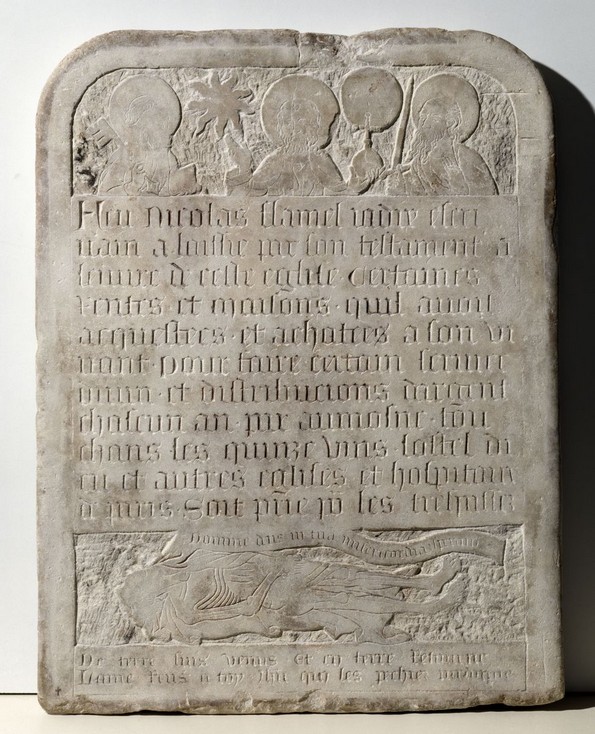 Feu Nicolas flamel iadiz escri
uain a laissie par son testament a
leuure de ceste eglise certaines
rentes et maisons · quil auoit
acquestees · et achatees a son vi
uant · pour faire certain seruice
diuin · et distribucions dargent
chascun an · par aumosne · tou
chans les quinze vins · lostel di
eu et autres eglises et hospitaux
de paris · Soit prie por les trespassez
Domine deus in tua misericordia speraui
De terre suis venus et en terre retourne
Lame rens a toy ihu qui les pechiez pardonne